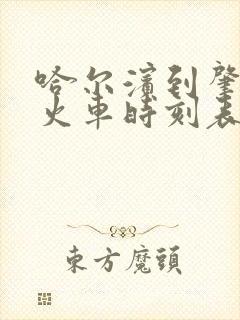 哈尔滨到肇
火车时刻表
东方魔頭